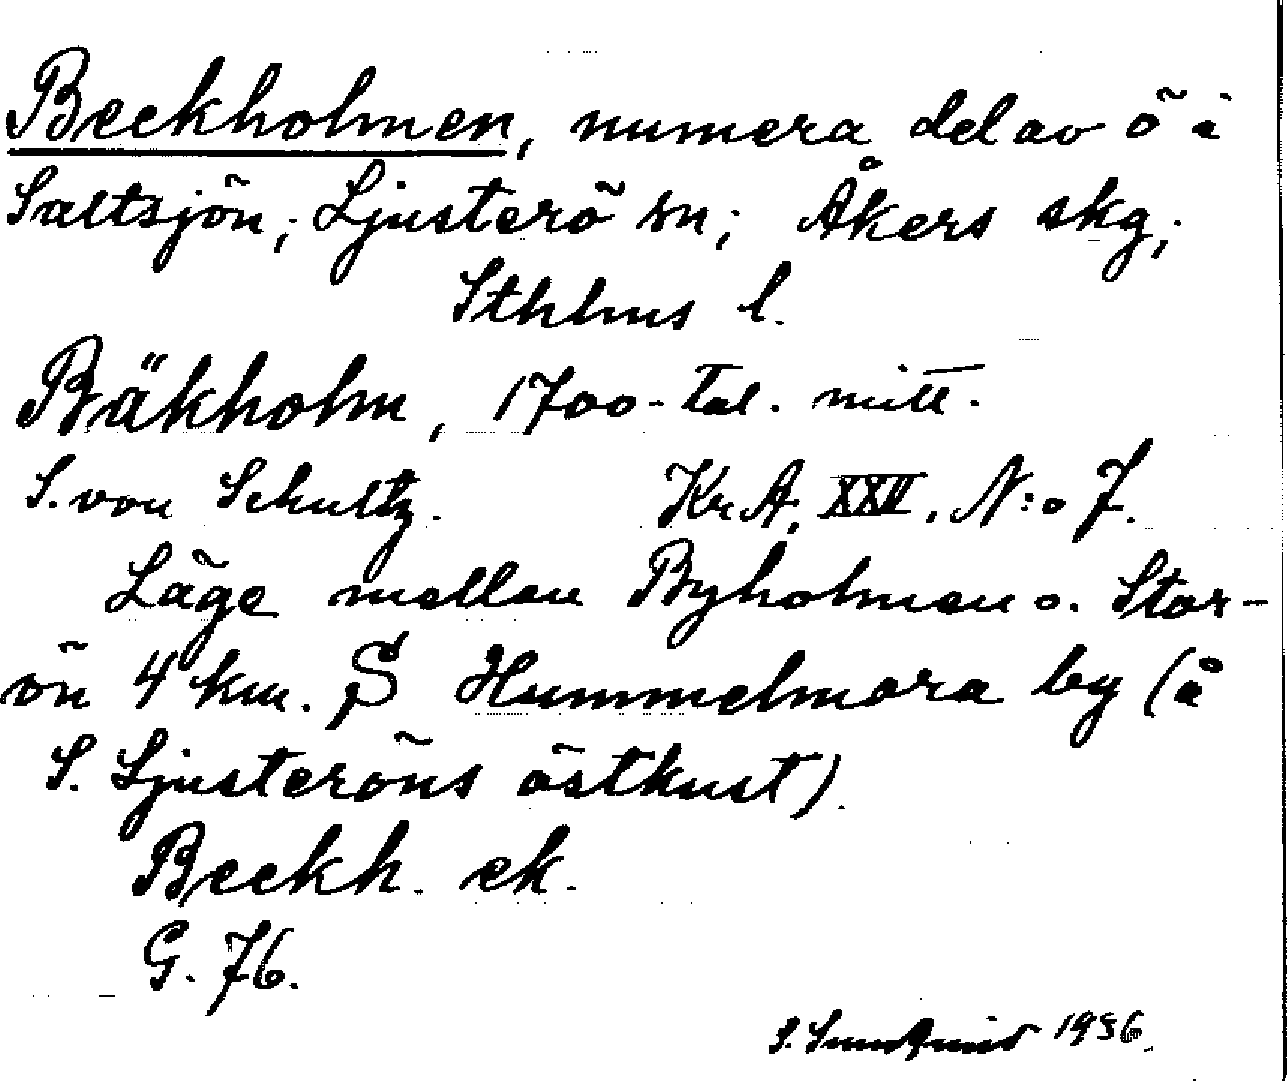 Beckholmen, numera del av ö i
Saltsjön; Ljusterö sn; Åkers skg;
Sthlms l.
Bäkholm, 1700-tal. mitt.
S. von Schultz. KrA, XXII, N:o 7.
Läge mellan Byholmen o. Stor-
ön 4 km. S Hummelmora by (å
S. Ljusteröns östkust).
Beckh. ek.
G. 76.
S. Sundqvist 1936.